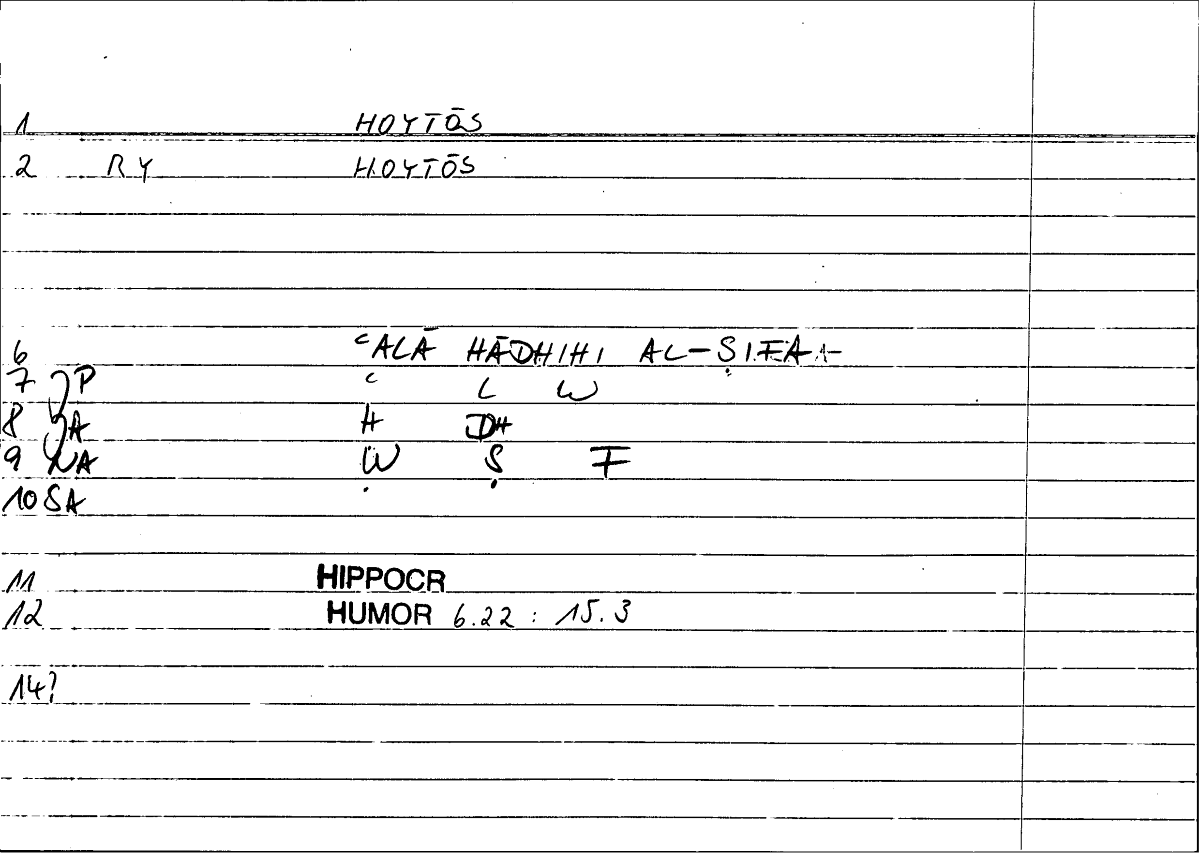 1 HOYTŌS
2 RY HOYTŌS
6 ʿALĀ HĀDHIHI AL-ṢIFA
7 P ʿ L W
8 A H DH
9 NA W Ṣ F
10 SA
11 HIPPOCR
12 HUMOR 6.22 : 15.3
14?